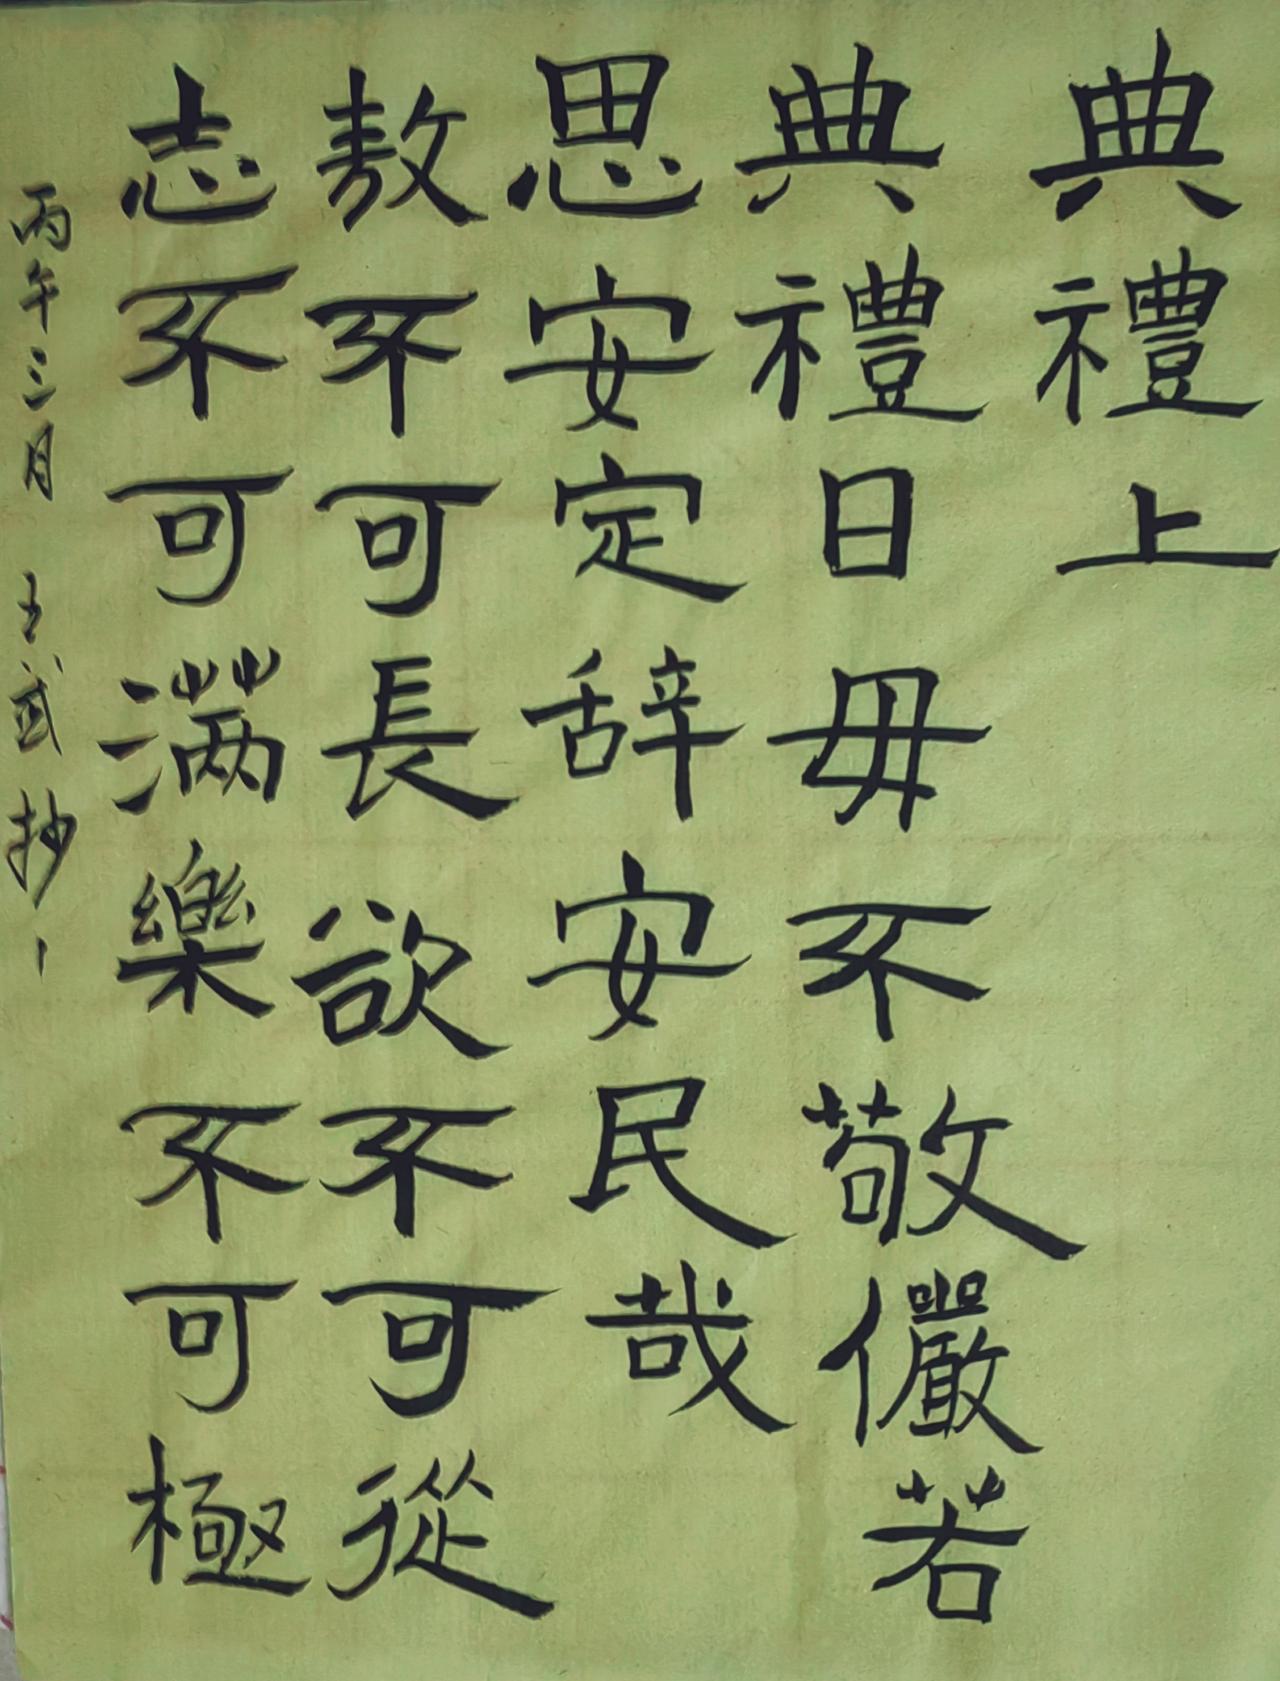 典禮上
典禮日毋不敬儼若
思安定辞安民哉
敖不可長欲不可從
志不可滿樂不可極
丙午三月 王斌抄